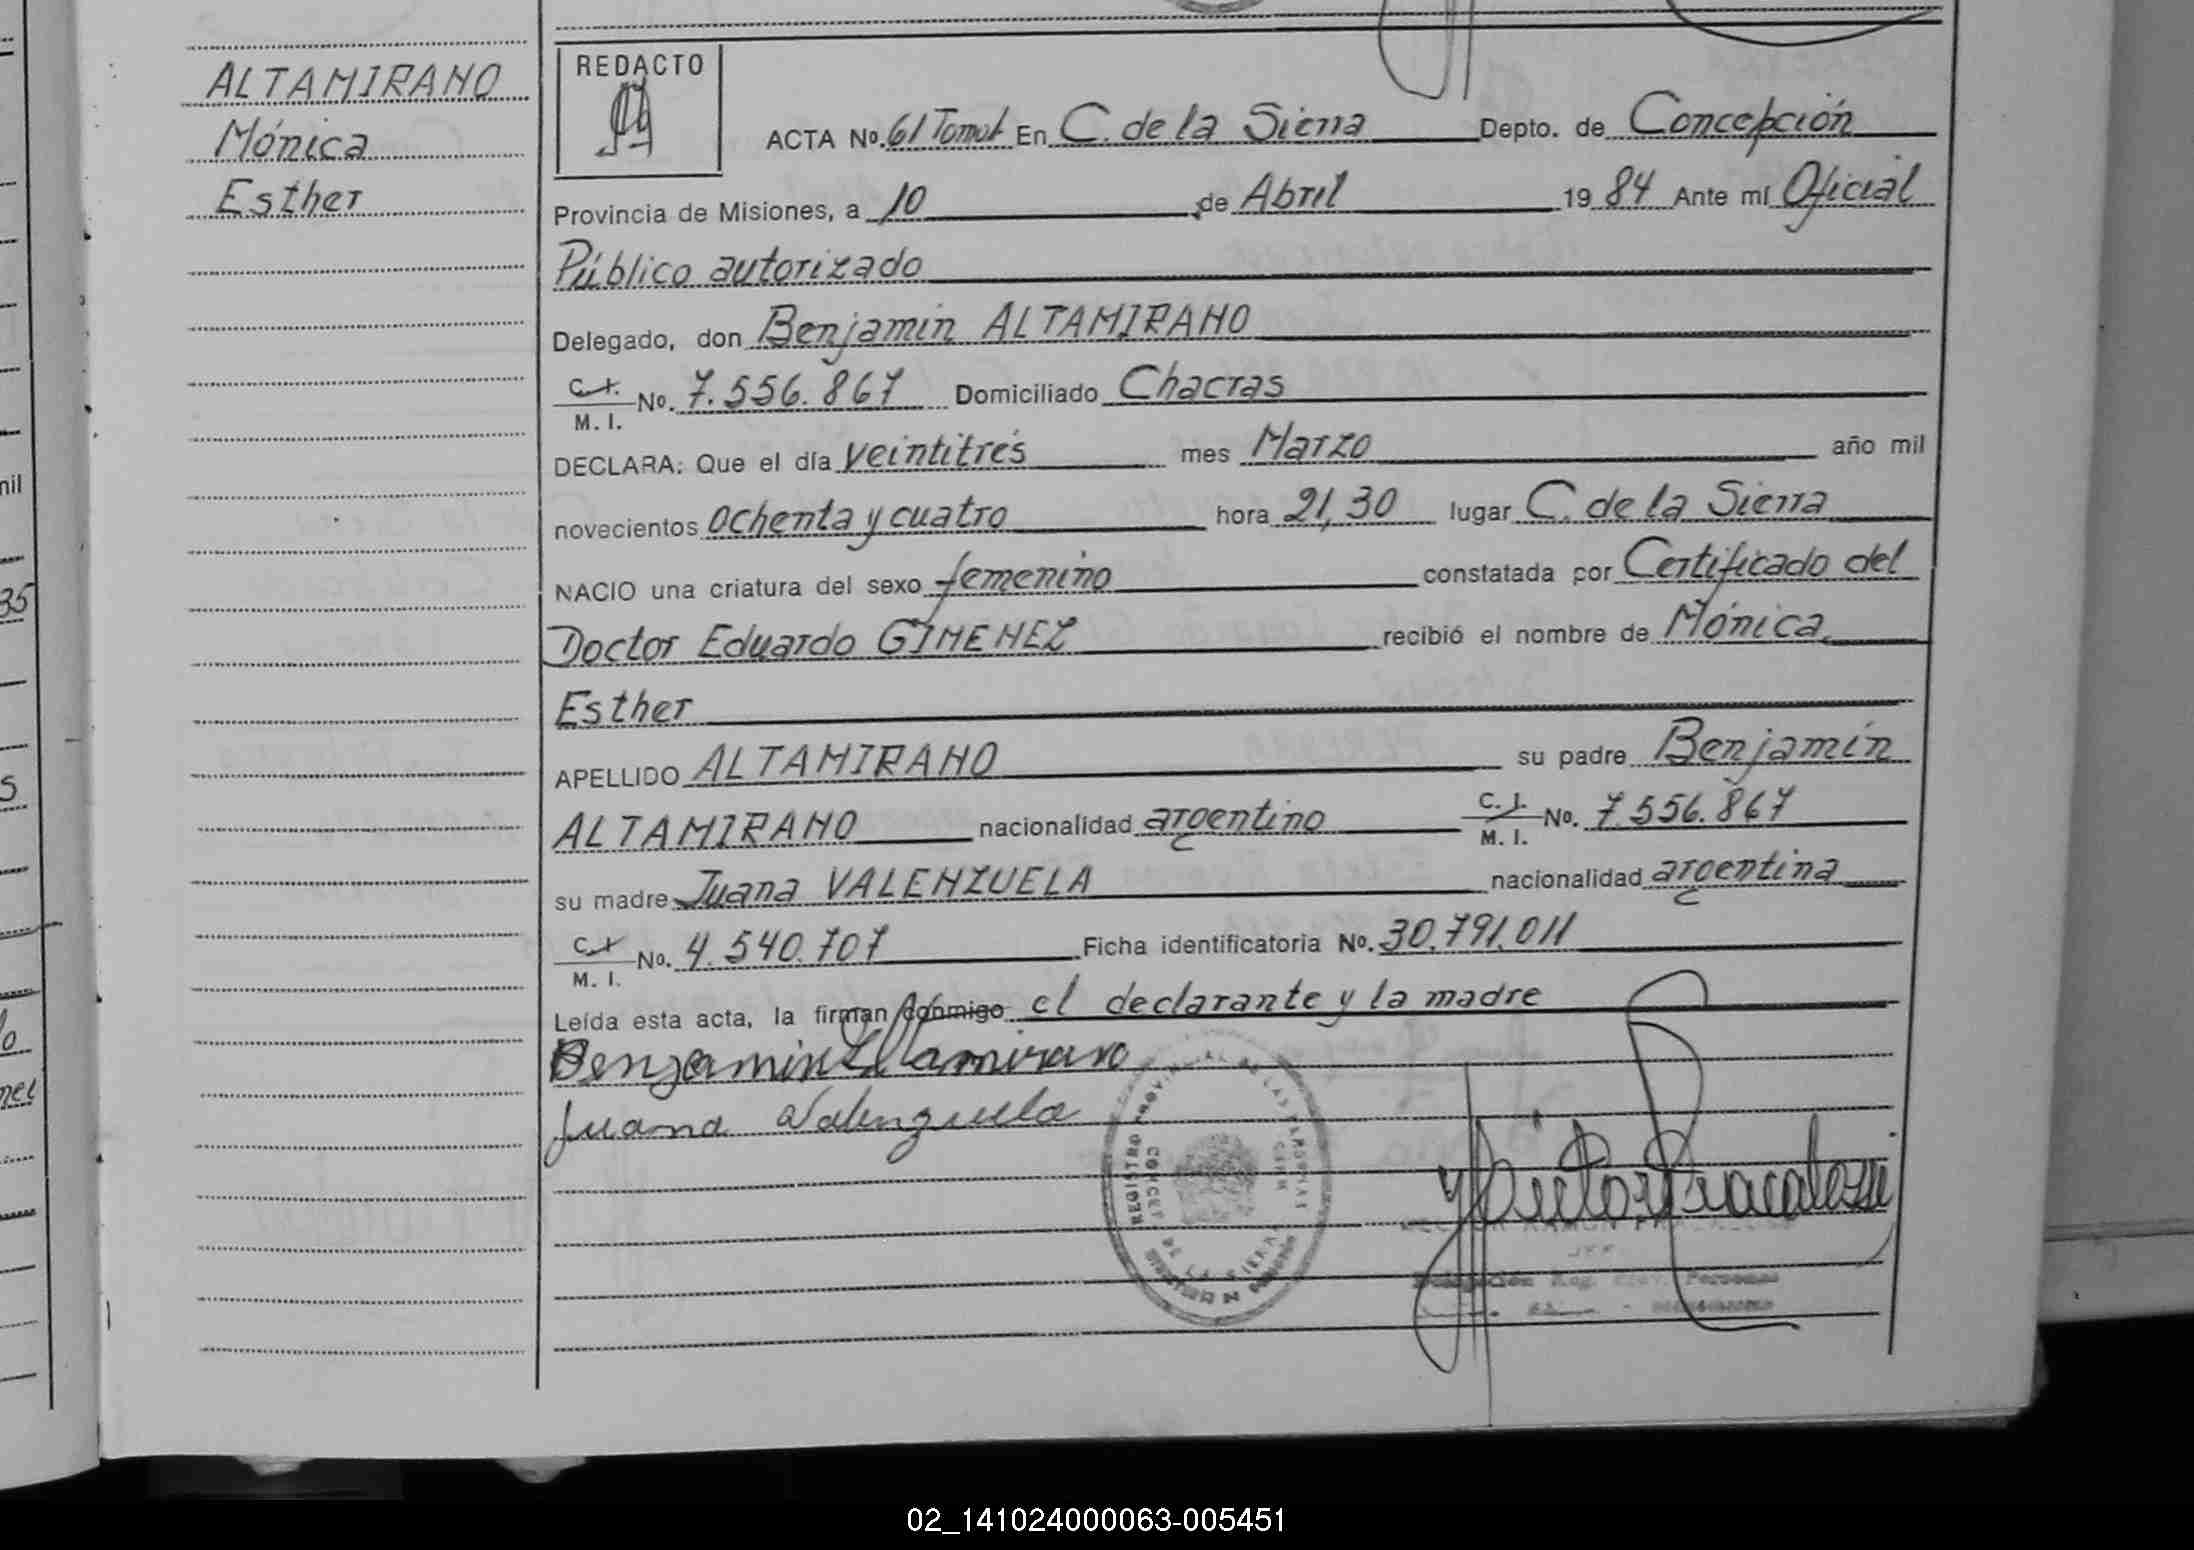 ALTAMIRANO
Mónica
Esther
REDACTO
ACTA No. 61 Tomo I En C. de la Sierra Depto. de Concepción
Provincia de Misiones, a 10 de Abril 1984 Ante mí Oficial
Público autorizado
Delegado, don Benjamín ALTAMIRANO
C.I. M. I. No. 7.556.867 Domiciliado Chacras
DECLARA: Que el día veintitrés mes Marzo año mil
novecientos ochenta y cuatro hora 21,30 lugar C. de la Sierra
NACIO una criatura del sexo femenino constatada por Certificado del
Doctor Eduardo GIMENEZ recibió el nombre de Mónica
Esther
APELLIDO ALTAMIRANO su padre Benjamín
ALTAMIRANO nacionalidad argentino C. I. M. I. No. 7.556.867
su madre Juana VALENZUELA nacionalidad argentina
C.I. M. I. No. 4.540.707 Ficha identificatoria No. 30.791.011
Leída esta acta, la firman conmigo el declarante y la madre
Benjamin Altamirano
Juana Valenzuela
REGISTRO PROVINCIAL DE LAS PERSONAS
02_141024000063-005451